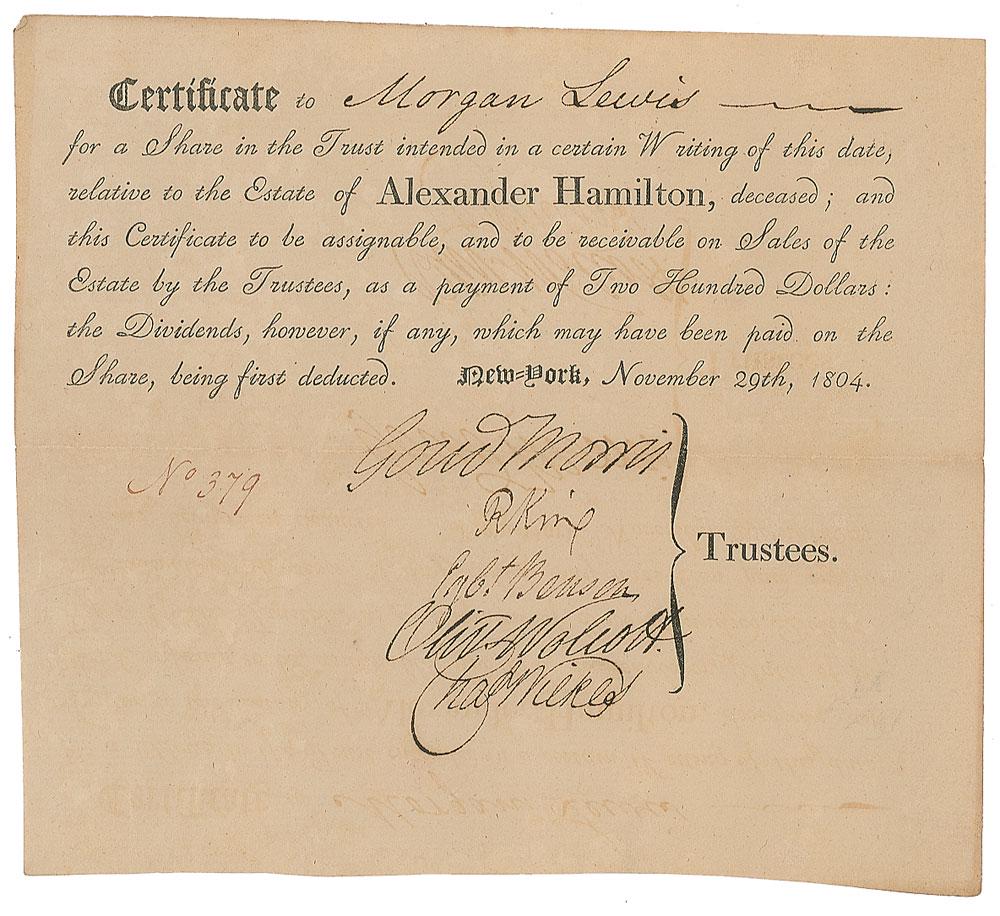 Certificate to Morgan Lewis
for a Share in the Trust intended in a certain Writing of this date,
relative to the Estate of Alexander Hamilton, deceased; and
this Certificate to be assignable, and to be receivable on Sales of the
Estate by the Trustees, as a payment of Two Hundred Dollars:
the Dividends, however, if any, which may have been paid on the
Share, being first deducted. New-York, November 29th, 1804.
Gouv Morris
No 379
R King
Egbt Benson
Trustees.
Oliv Wolcott.
Chas Wilkes